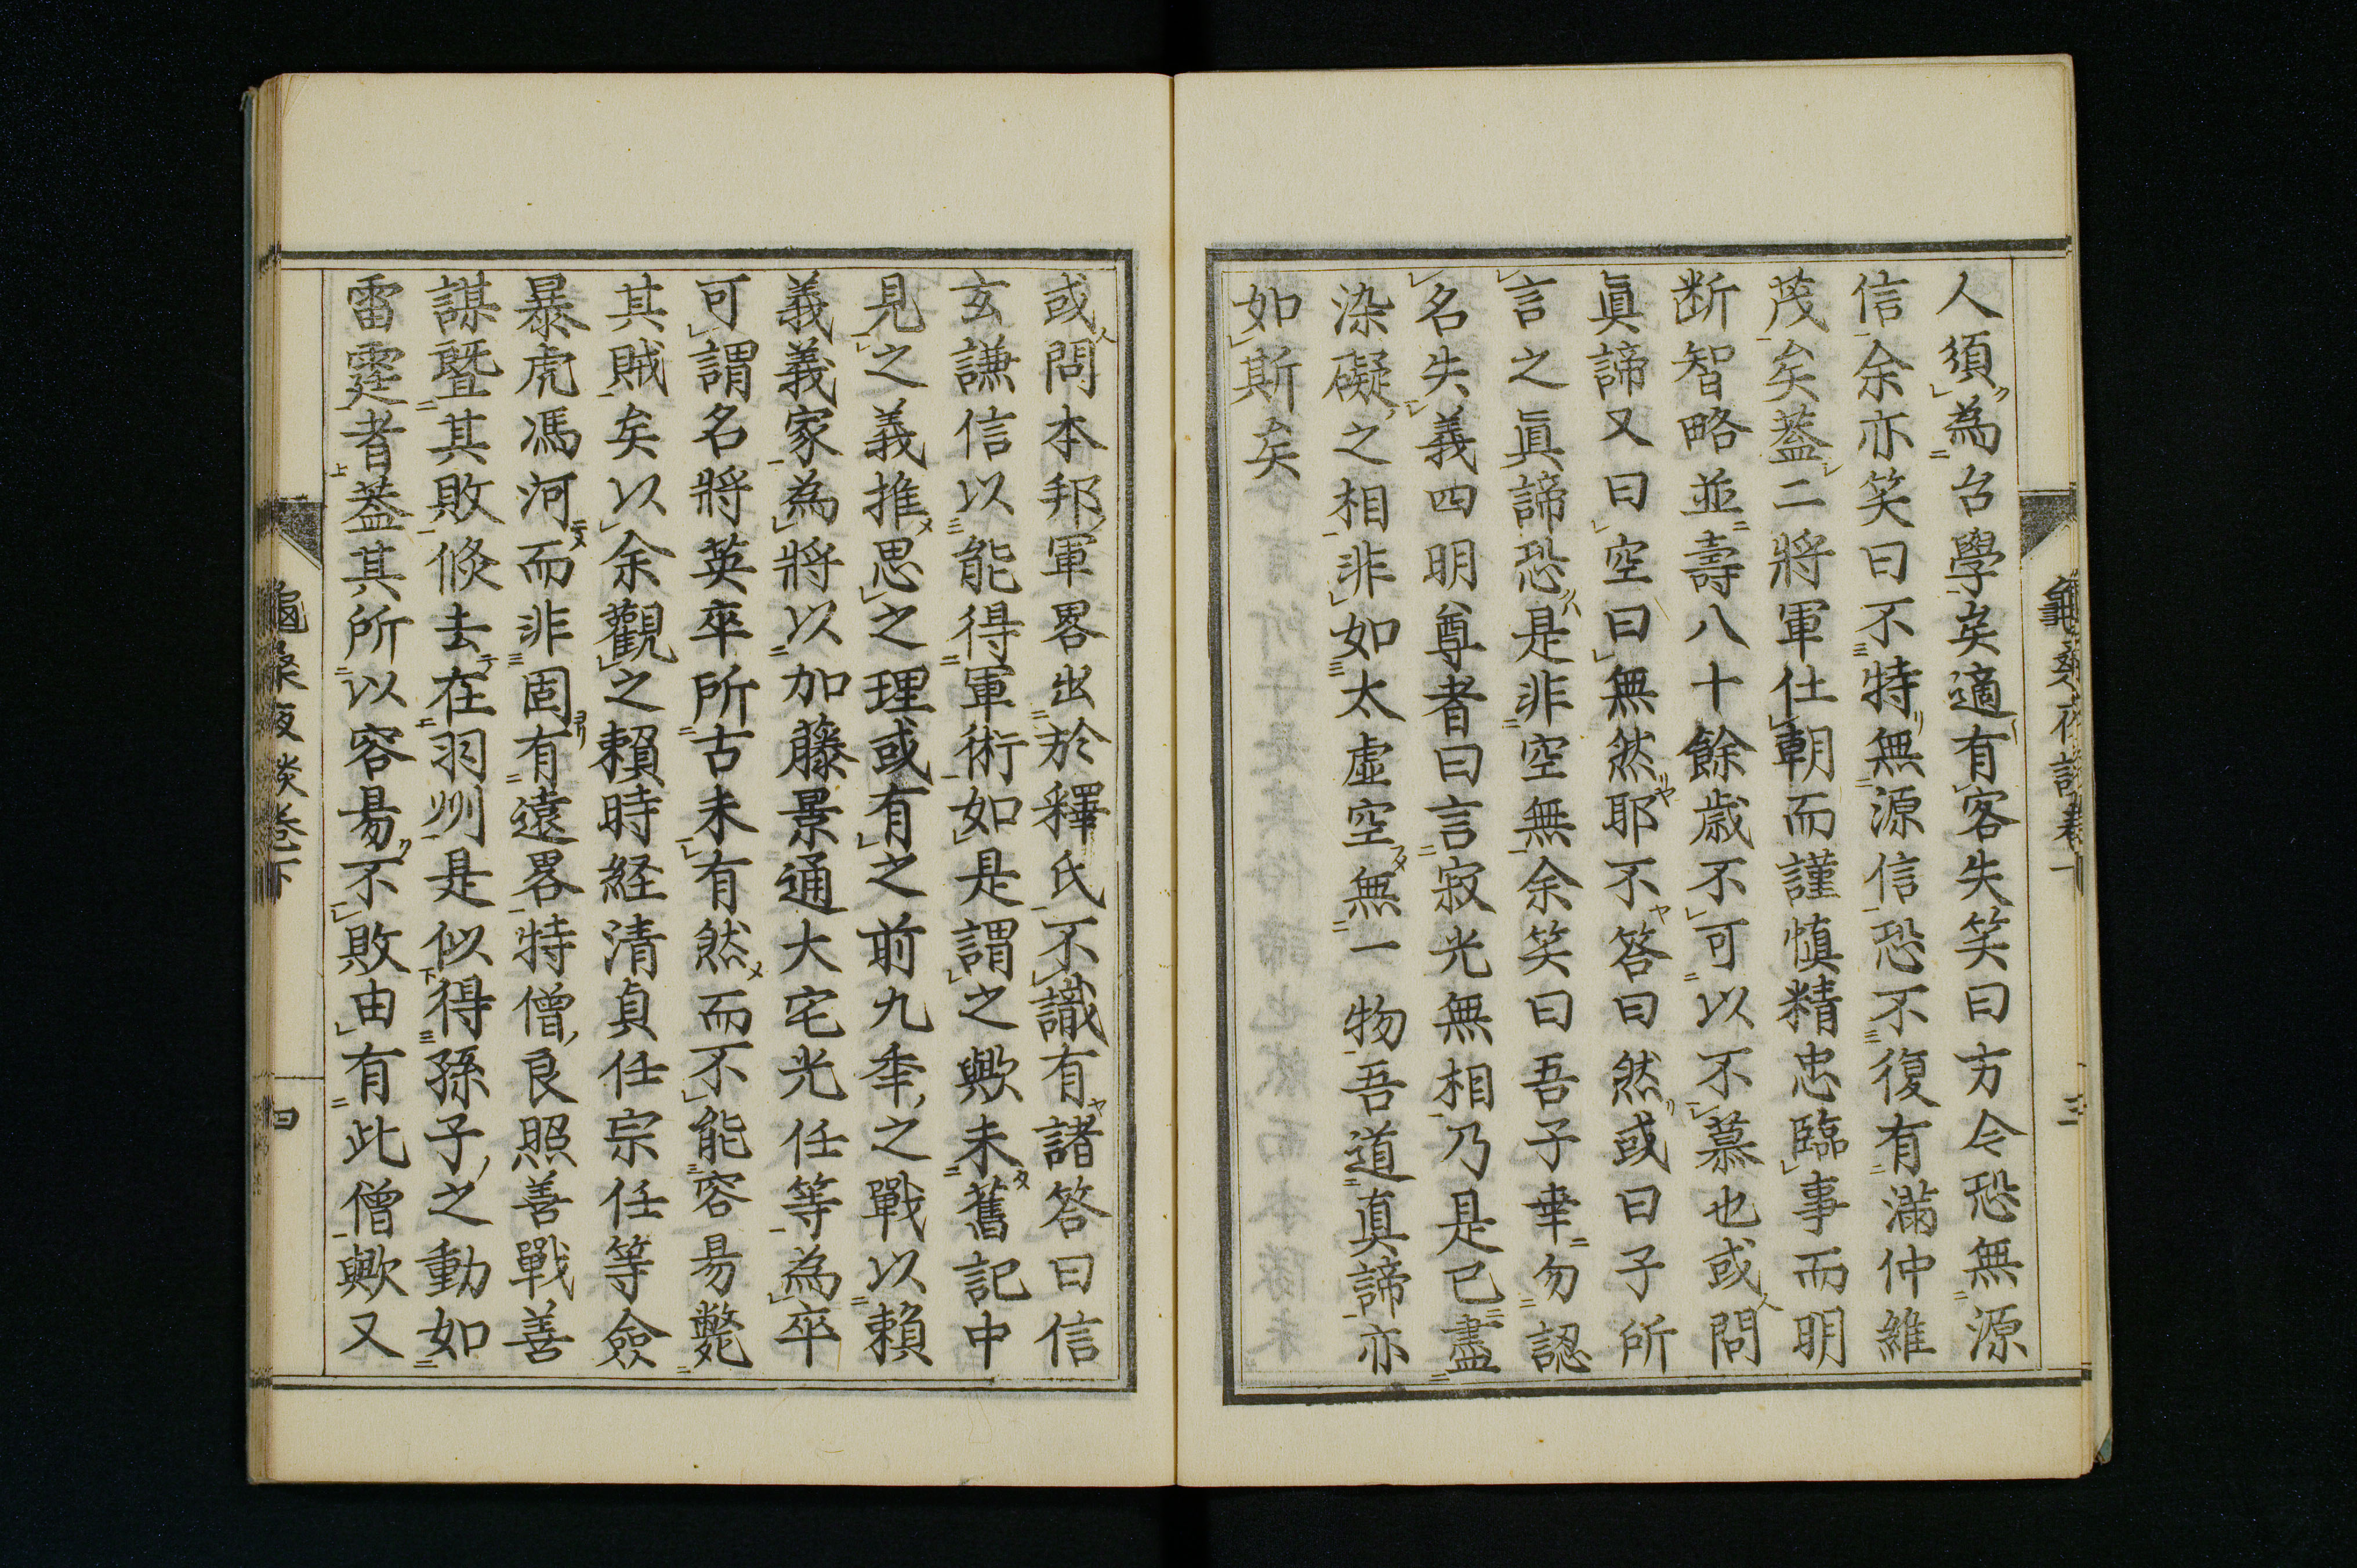 人須為名學矣適有客失笑曰方今恐無源
信余亦笑曰不特無源信恐不復有滿仲維
茂矣蓋二將軍仕朝而謹慎精忠臨事而明
断智略並壽八十餘歳不可以不慕也或問
眞諦又曰空曰無然耶不答曰然或曰子所
言之眞諦恐是非空無余笑曰吾子幸勿認
名失義四明尊者曰言寂光無相乃是已盡
染礙之相非如太虛空無一物吾道真諦亦
如斯矣
或問本邦軍畧出於釋氏不識有諸答曰信
玄謙信以能得軍術如是謂之歟未舊記中
見之義推思之理或有之前九季之戰以賴
義義家為將以加藤景通大宅光任等為卒
可謂名將英卒所古未有然而不能容易斃
其賊矣以余觀之賴時経清貞任宗任等僉
暴虎馮河而非固有遠畧特僧良照善戰善
謀暨其敗倏去在羽州是似得孫子之動如
雷霆者蓋其所以容易不敗由有此僧歟又
夜談卷下
四
三